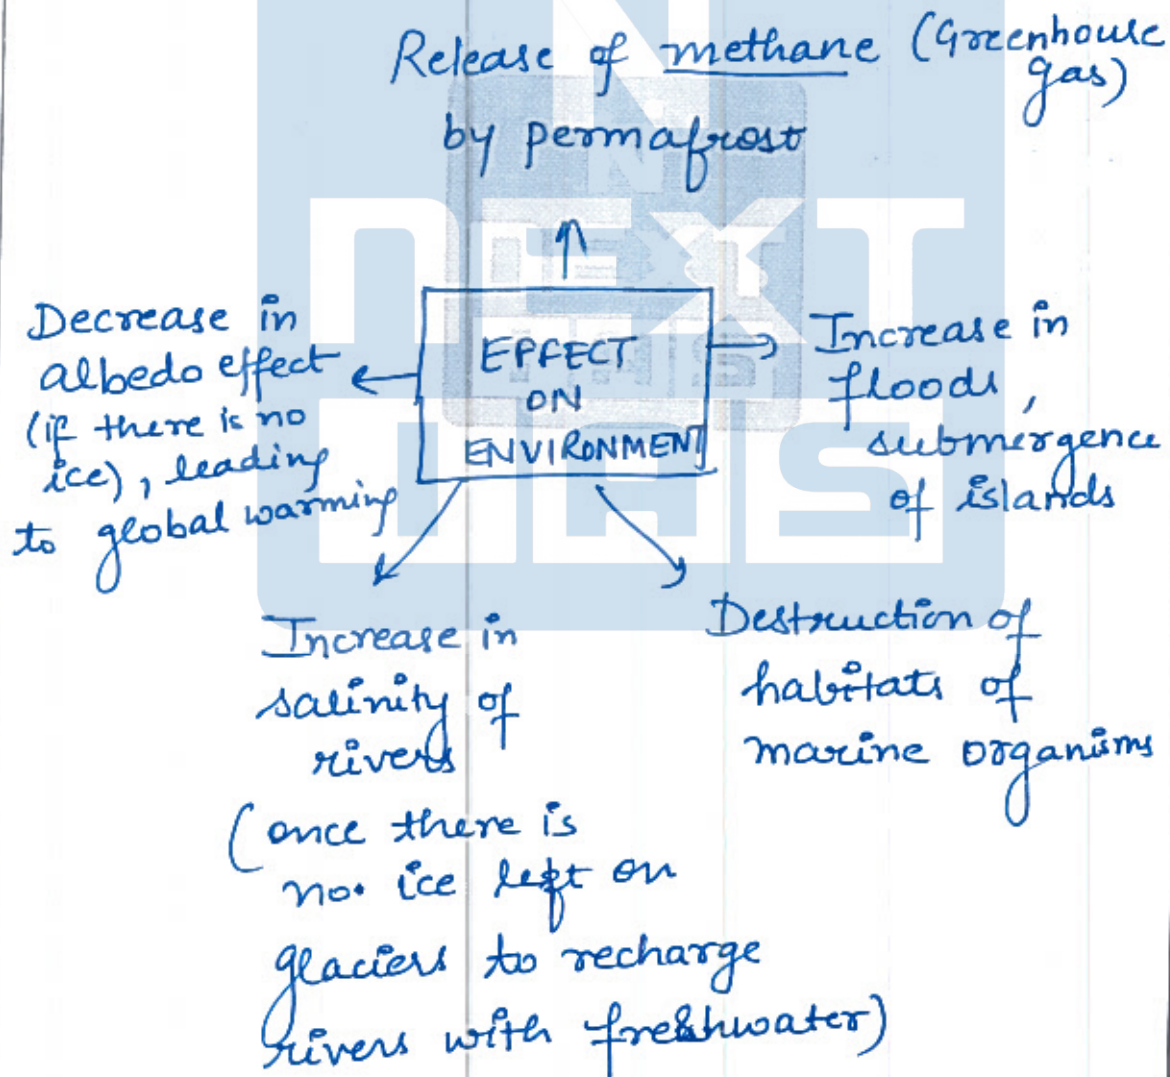 Release of methane (Greenhouse
gas)
by permafrost
Decrease in
albedo effect
(if there is no
ice), leading
to global warming
EFFECT
ON
ENVIRONMENT
Increase in
floods,
submergence
of islands
Increase in
salinity of
rivers
(once there is
no. ice left on
glaciers to recharge
rivers with freshwater)
Destruction of
habitats of
marine organisms
N
NEXT
IAS